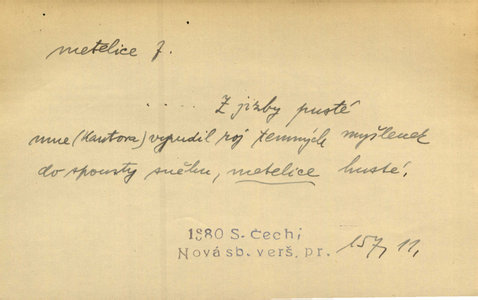 metelice f.
..... Z jizby pusté
mne (Kantora) vypudil roj temných myšlenek
do spousty sněhu, metelice husté.
1880 S. Čech,
Nová sb. verš. pr. 157, 11,